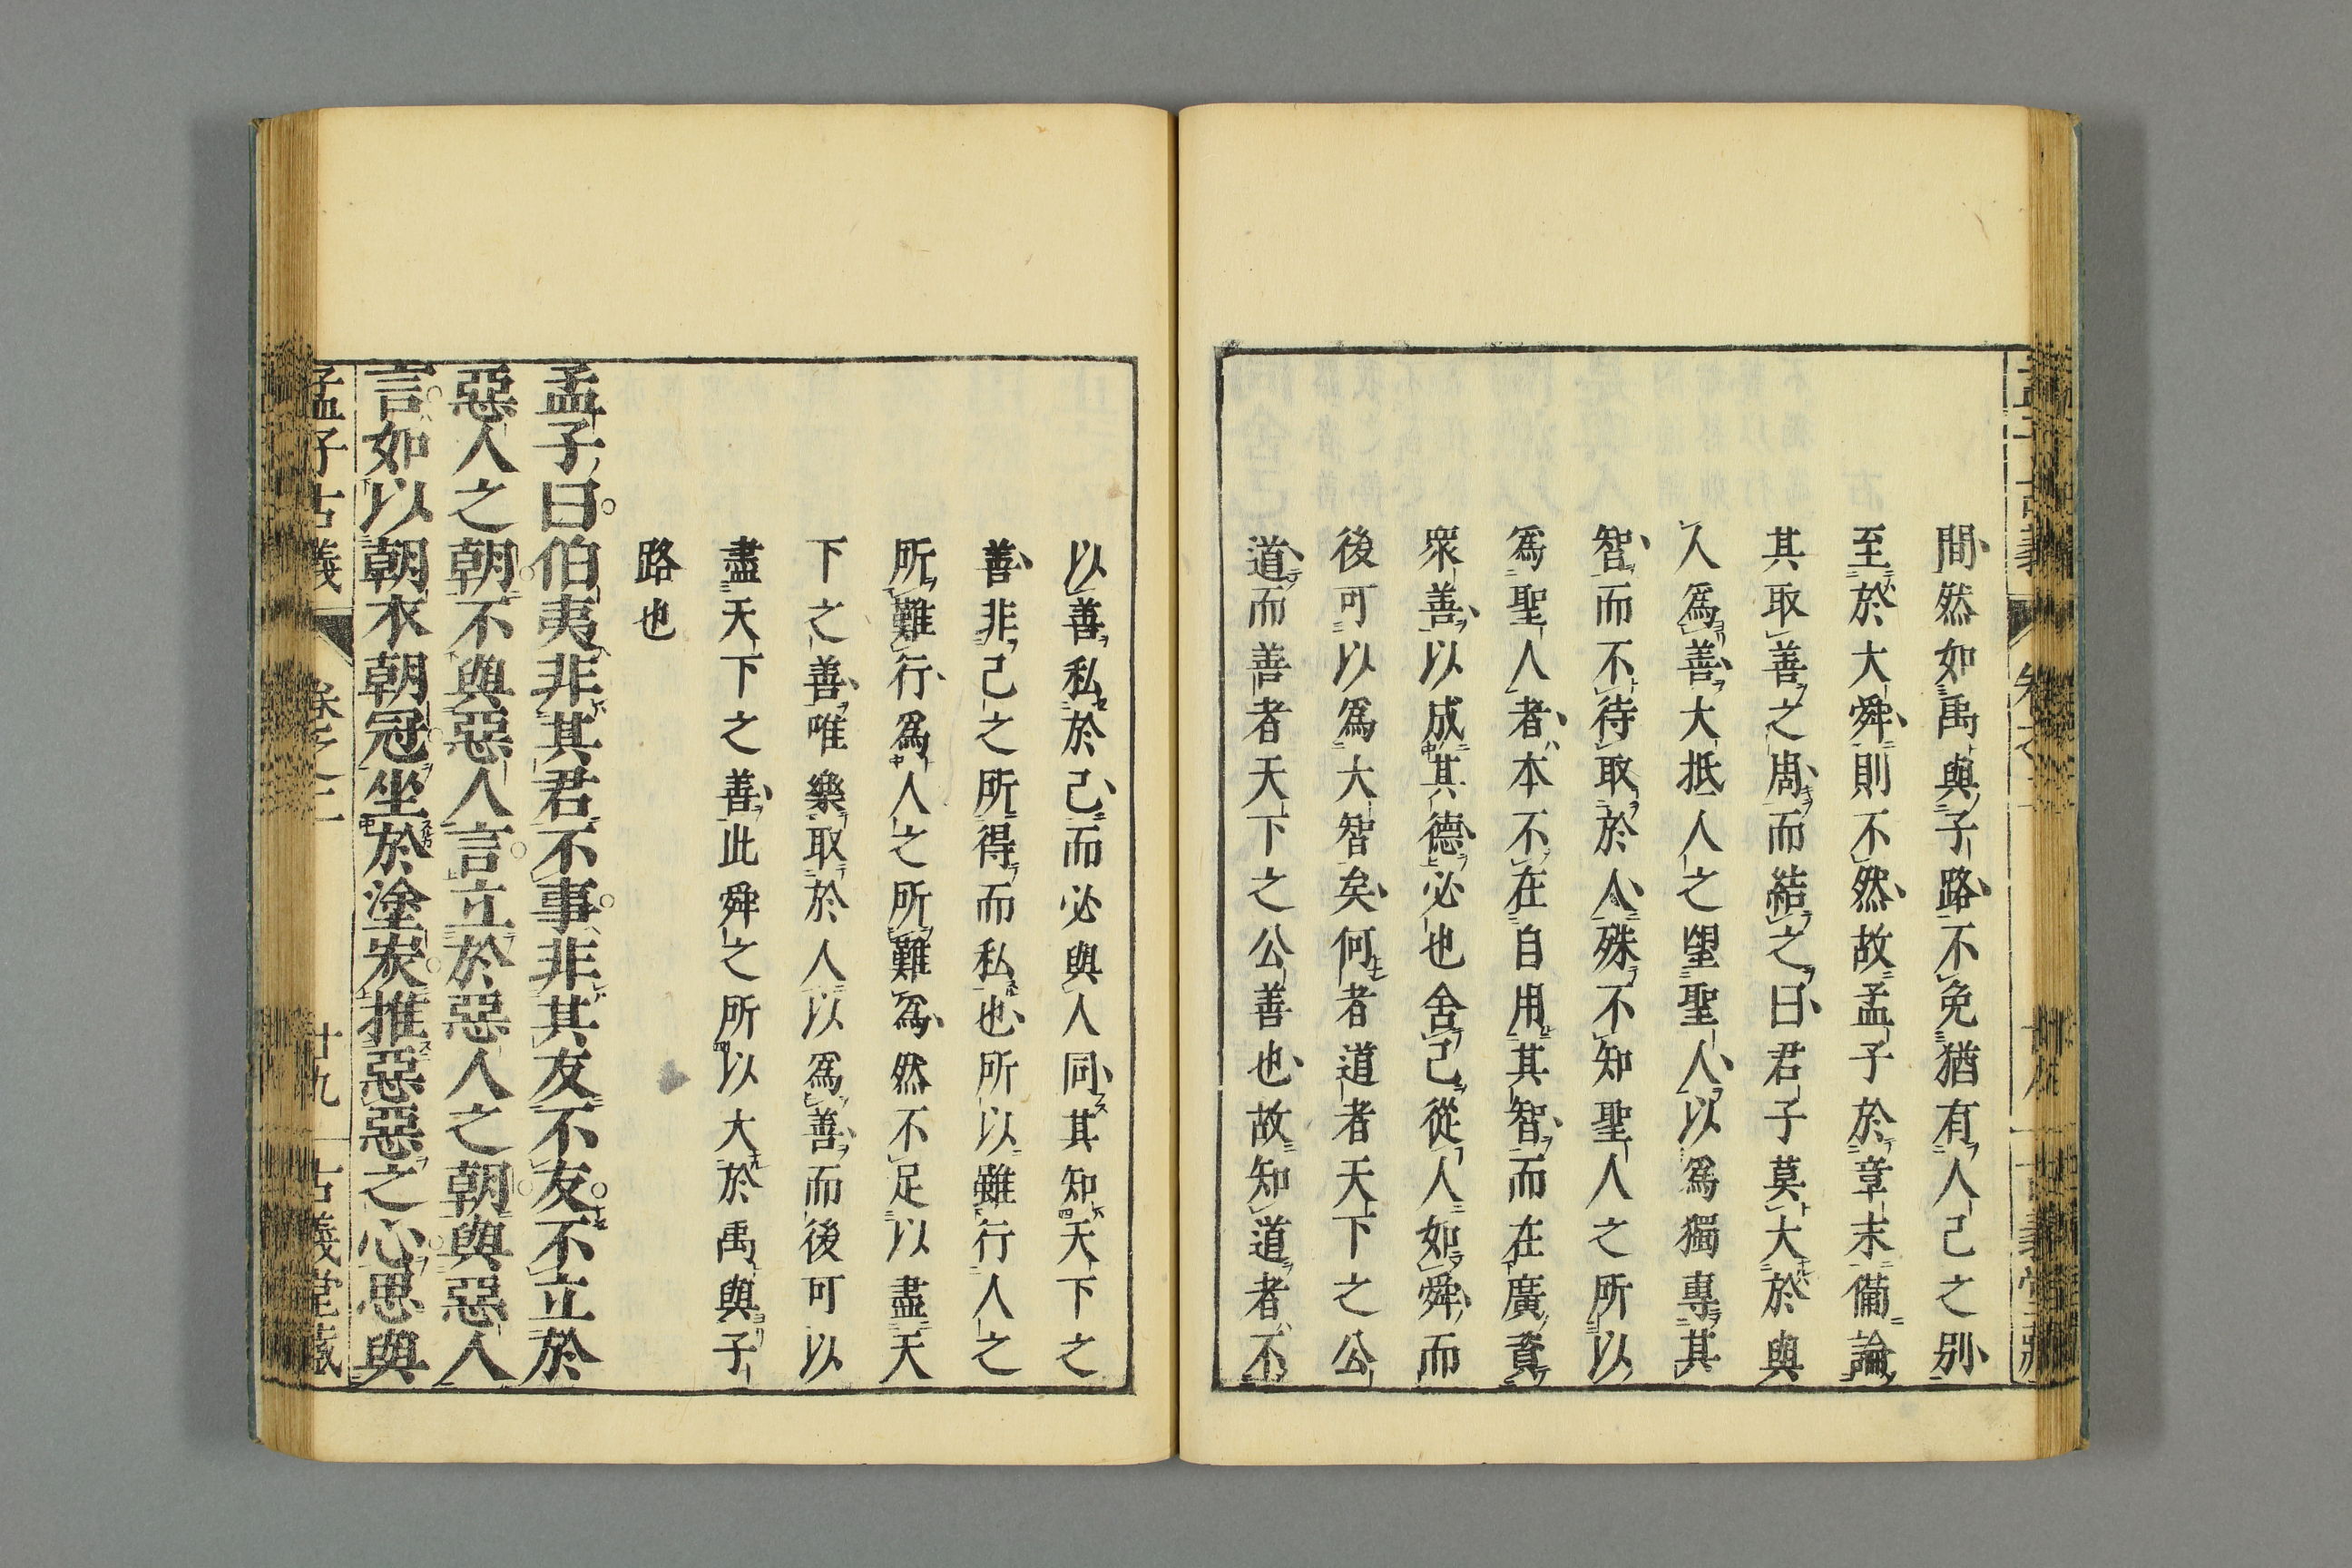 間然如禹與子路不免猶有人己之別
至於大舜則不然故孟子於章末備論
其取善之周而結之曰君子莫大於與
人爲善大抵人之望聖人以爲獨專其
智而不待取於人殊不知聖人之所以
爲聖人者本不在自用其智而在廣資
衆善以成其德必也舍己從人如舜而
後可以爲大智矣何者道者天下之公
道而善者天下之公善也故知道者不
以善私於己而必與人同其知天下之
善非己之所得而私也所以雖行人之
所難行爲人之所難爲然不足以盡天
下之善唯樂取於人以爲善而後可以
盡天下之善此舜之所以大於禹與子
路也
孟子曰伯夷非其君不事非其友不友不立於
惡人之朝不與惡人言立於惡人之朝與惡人
言如以朝衣朝冠坐於塗炭推惡惡之心思與
孟子古義 卷之二 廿九 古義堂藏